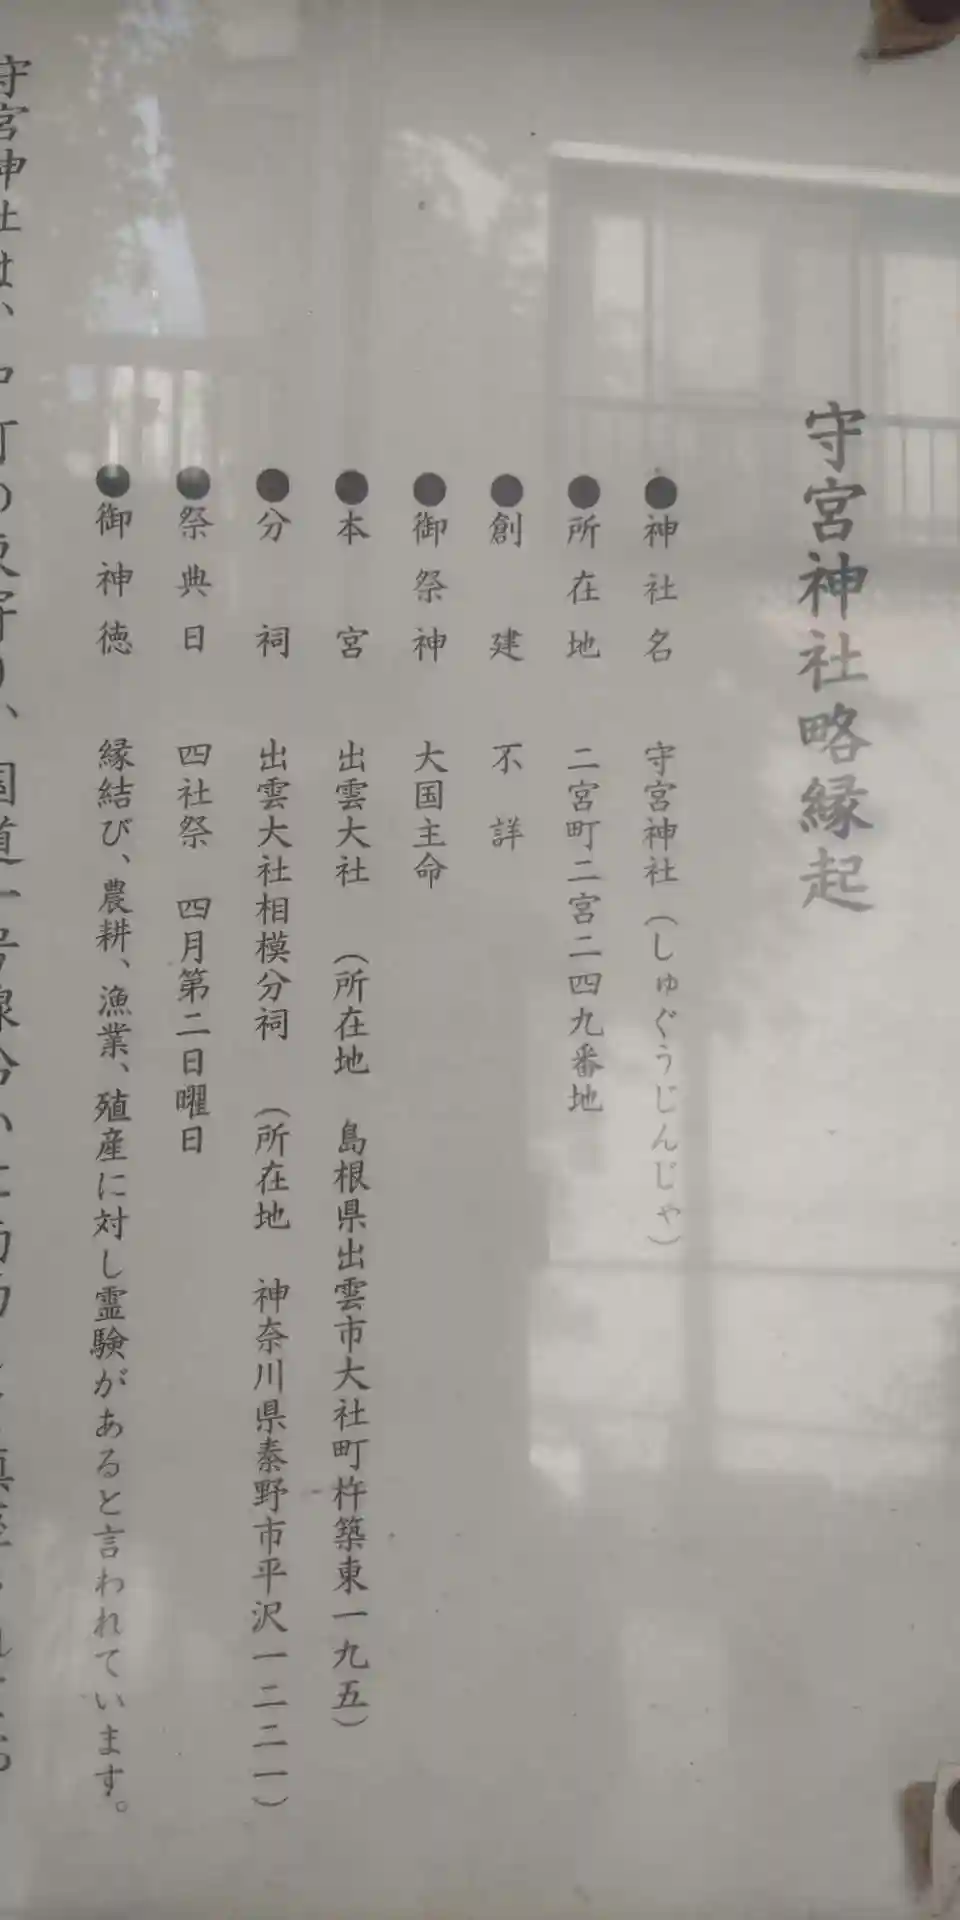 守宮神社略縁起
●神社名 守宮神社（しゅぐうじんじゃ）
●所在地 二宮町二宮二四九番地
●創建 不詳
●御祭神 大国主命
●本宮 出雲大社 （所在地 島根県出雲市大社町杵築東一九五）
●分祠 出雲大社相模分祠 （所在地 神奈川県秦野市平沢一二二一）
●祭典日 四社祭 四月第二日曜日
●御神徳 縁結び、農耕、漁業、殖産に対し霊験があると言われています。
守宮神社は、